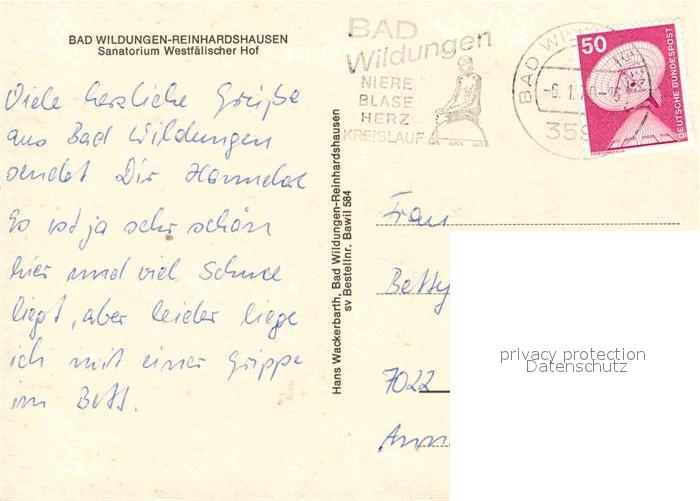 BAD WILDUNGEN-REINHARDSHAUSEN
Sanatorium Westfälischer Hof
Viele herzliche Grüße
aus Bad Wildungen
sendet Dir Hannelore
Es ist ja sehr schön
hier und viel Schnee
liegt, aber leider liege
ich mit einer Grippe
im Bett.
Hans Wackerbarth, Bad Wildungen-Reinhardshausen
sv Bestellnr. Bawil 584
BAD
Wildungen
NIERE
BLASE
HERZ
KREISLAUF
BAD WIL
-6.1.
359
50
DEUTSCHE BUNDESPOST
Frau
Betty
7022
privacy protection
Datenschutz